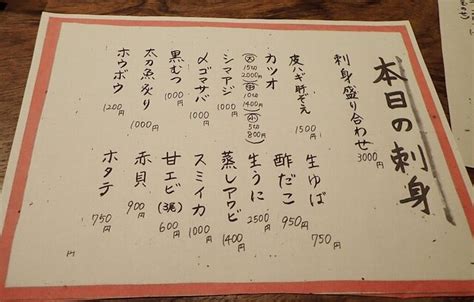 本日の刺身
刺身盛り合わせ 3000円
皮ハギ肝ぞえ 1500円
カツオ
大 15切 2000円
中 10切 1400円
小 5切 800円
シマアジ 1000円
〆ゴマサバ 1000円
黒むつ 1000円
太刀魚炙り 1000円
ホウボウ 1200円
生ゆば 750円
酢だこ 950円
生うに 2500円
蒸しアワビ 1400円
スミイカ 1000円
甘エビ(3尾) 600円
赤貝 900円
ホタテ 750円
円